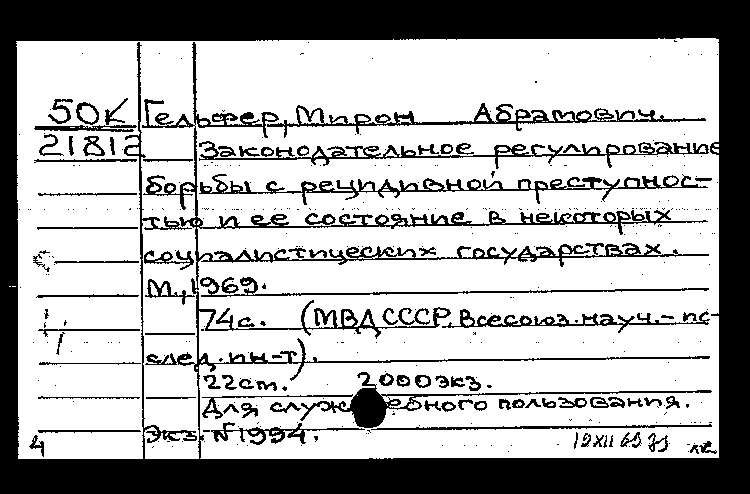 50К Гельфер, Мирон Абрамович.
21812 Законодательное регулирование
борьбы с рецидивной преступнос-
тью и ее состояние в некоторых
социалистических государствах.
М., 1969.
74с. (МВД СССР. Всесоюз. науч.-ис-
след. ин-т).
22см. 2000экз.
Для служебного пользования.
Экз. №1994.
4